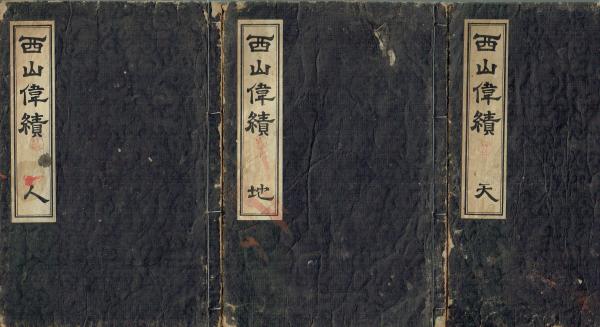 西山偉績 天
西山偉績 地
西山偉績 人